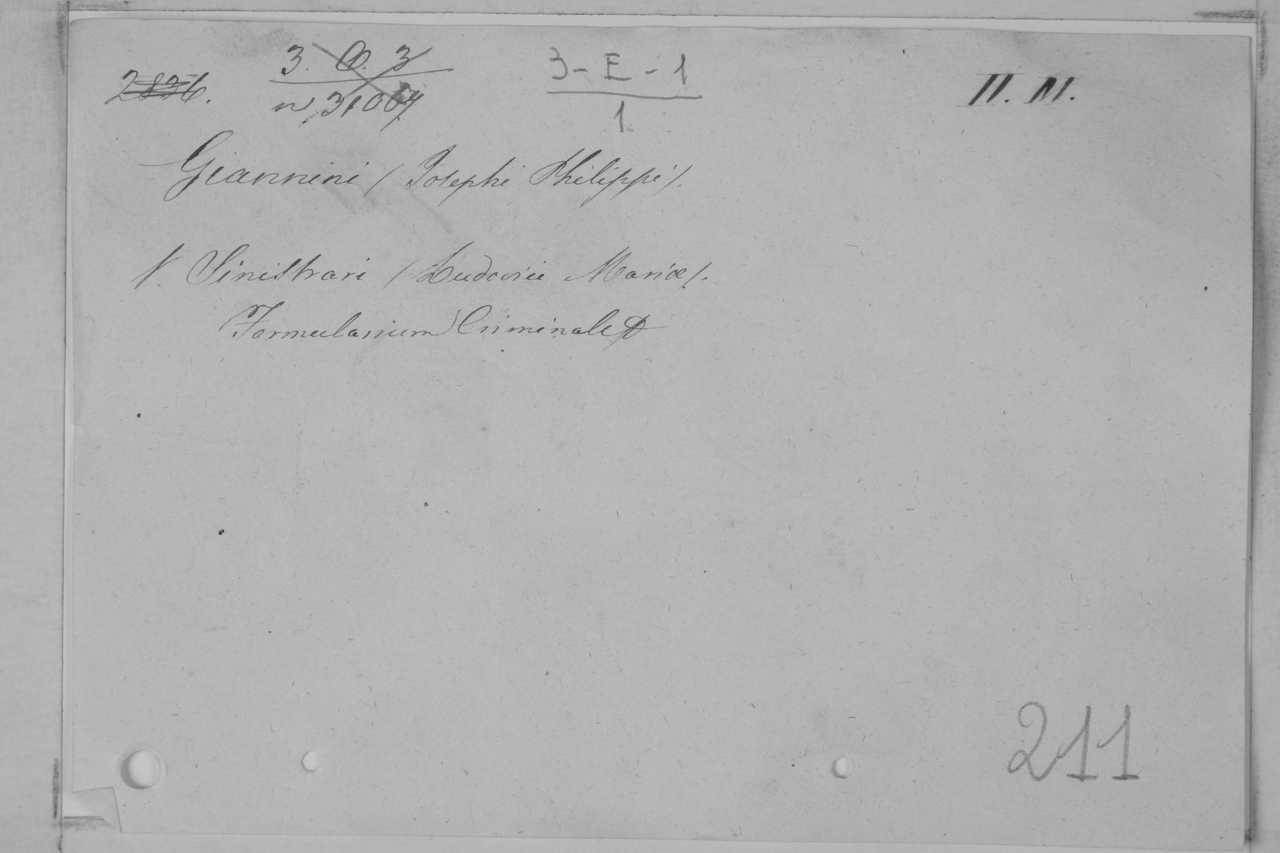 2836. 3. O. 3 3-E-1 II. M.
n 31067 1
Giannini (Josephi Philippi).
V. Sinistrari (Ludovici Mariæ).
Formularium Criminale
211